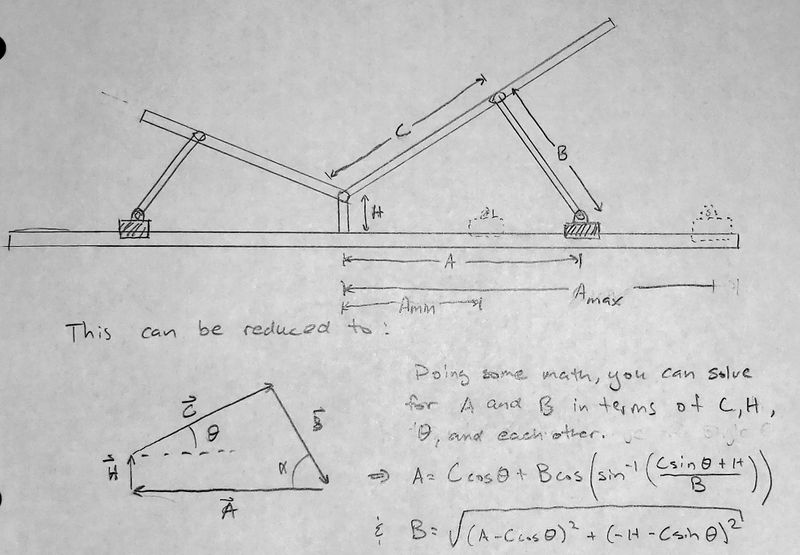 C
B
H
A
Amin
Amax
This can be reduced to:
C⃗
θ
B⃗
H⃗
α
A⃗
Doing some math, you can solve
for A and B in terms of C, H,
θ, and each other.
⇒ A = C cos θ + B cos (sin⁻¹ ((C sin θ + H)/B))
& B = √((A - C cos θ)² + (-H - C sin θ)²)